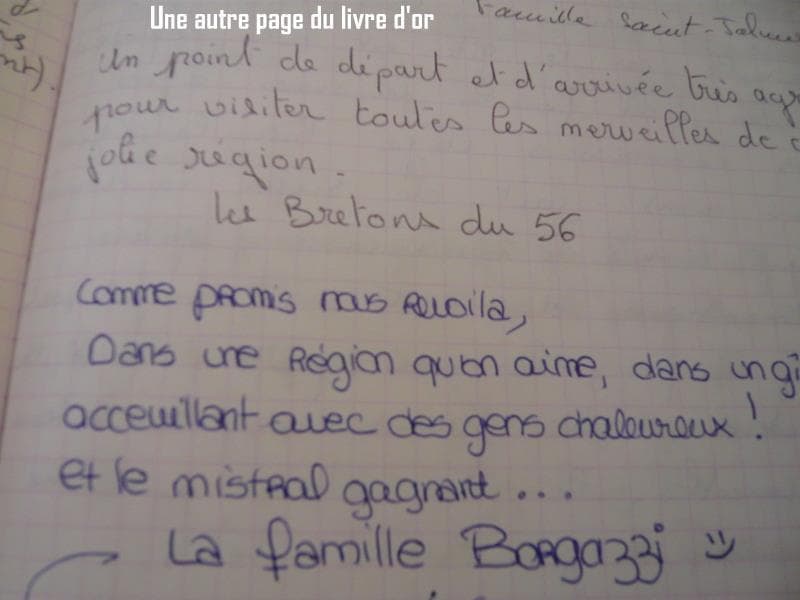 Une autre page du livre d'or
Famille Saint-
Un point de départ et d'arrivée très
pour visiter toutes les merveilles de
jolie région.
Les Bretons du 56
Comme promis nous revoila,
Dans une Région qu'on aime, dans un gî
acceuillant avec des gens chaleureux !
et le mistral gagnant...
La famille Borgazzi